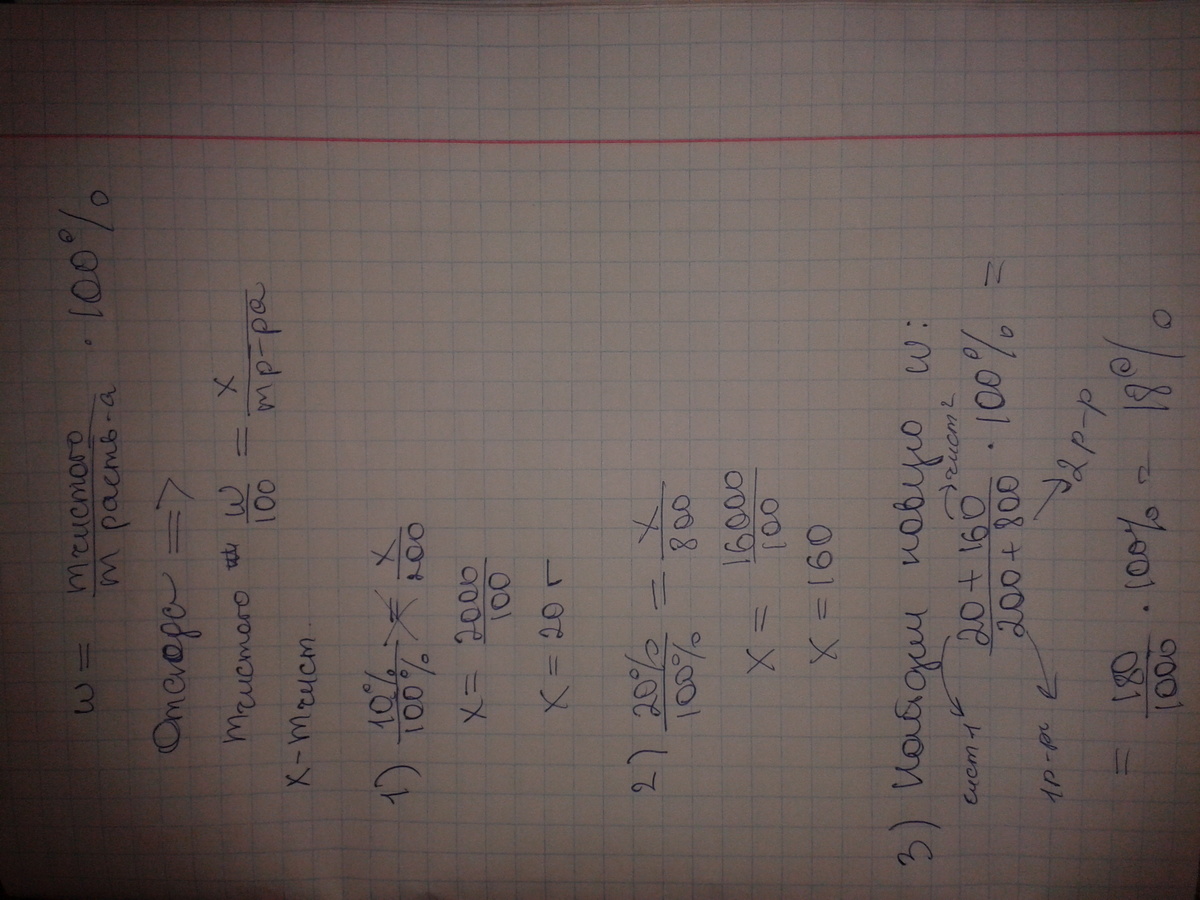 w = m чистого / m раств-а · 100%
Отсюда =>
m чистого w/100 = x/m р-ра
x - m чист.
1) 10%/100% = x/200
x = 2000/100
x = 20 г
2) 20%/100% = x/800
x = 16000/100
x = 160
3) Находим новую w:
чист 1 чист 2
20 + 160 / 200 + 800 · 100% =
1 р-р 2 р-р
= 180/1000 · 100% = 18%